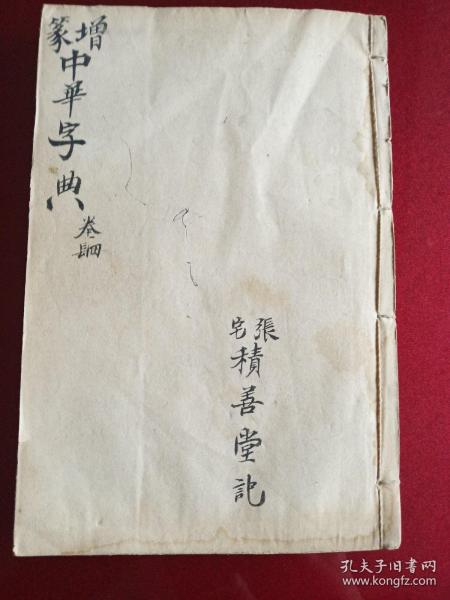 增篆中華字典
卷肆
張宅積善堂記
孔夫子旧书网
www.kongfz.com